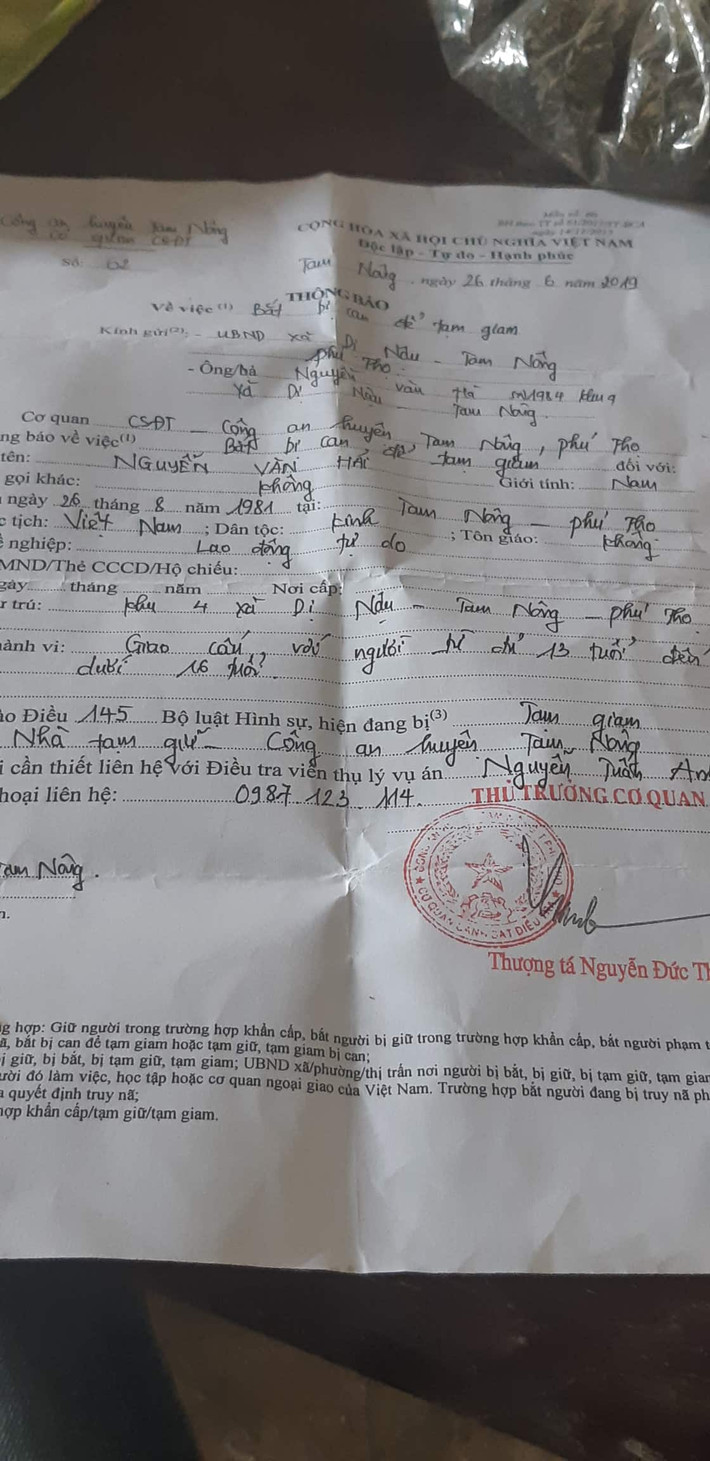 Công an huyện Tam Nông
Cơ quan CSĐT
Số: 02
CỘNG HÒA XÃ HỘI CHỦ NGHĨA VIỆT NAM
Độc lập - Tự do - Hạnh phúc
Tam Nông, ngày 26 tháng 6 năm 2019
THÔNG BÁO
Về việc(1) Bắt bị can để tạm giam
Kính gửi(2): - UBND xã Dị Nậu - Tam Nông
phú Thọ.
- Ông/bà Nguyễn Văn Hà 1984 khu 9
Xã Dị Nậu - Tam Nông.
Cơ quan CSĐT - Công an huyện Tam Nông, phú Thọ
ng báo về việc(1) Bắt bị can để tạm giam đối với:
tên: NGUYỄN VĂN HẢI Giới tính: Nam
gọi khác: không
ngày 26 tháng 8 năm 1981 tại: Tam Nông - phú Thọ
c tịch: Việt Nam ; Dân tộc: kinh ; Tôn giáo: không
ề nghiệp: Lao động tự do
MND/Thẻ CCCD/Hộ chiếu:
gày tháng năm Nơi cấp:
r trú: khu 4 xã Dị Nậu - Tam Nông - phú Thọ
hành vi: Giao cấu với người từ đủ 13 tuổi đến
dưới 16 tuổi.
o Điều 145 Bộ luật Hình sự, hiện đang bị(3) Tạm giam
Nhà tạm giữ - Công an huyện Tam Nông
i cần thiết liên hệ với Điều tra viên thụ lý vụ án Nguyễn Tuấn An
hoại liên hệ: 0987 123 114.
THỦ TRƯỞNG CƠ QUAN
am Nông.
n.
CƠ QUAN CẢNH SÁT ĐIỀU
Thượng tá Nguyễn Đức Th
g hợp: Giữ người trong trường hợp khẩn cấp, bắt người bị giữ trong trường hợp khẩn cấp, bắt người phạm t
ã, bắt bị can để tạm giam hoặc tạm giữ, tạm giam bị can;
ị giữ, bị bắt, bị tạm giữ, tạm giam; UBND xã/phường/thị trấn nơi người bị bắt, bị giữ, bị tạm giữ, tạm giam
ười đó làm việc, học tập hoặc cơ quan ngoại giao của Việt Nam. Trường hợp bắt người đang bị truy nã ph
a quyết định truy nã;
hợp khẩn cấp/tạm giữ/tạm giam.